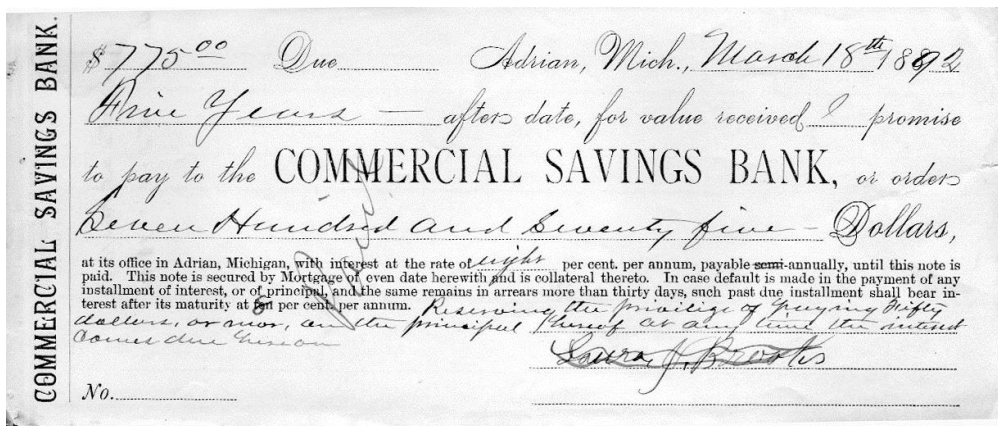 COMMERCIAL SAVINGS BANK.
$775 00 Due Adrian, Mich., March 18th 1892
Five Years — after date, for value received I promise
to pay to the COMMERCIAL SAVINGS BANK, or order
Seven Hundred and Seventy five — Dollars,
at its office in Adrian, Michigan, with interest at the rate of eight per cent. per annum, payable semi-annually, until this note is
paid. This note is secured by Mortgage of even date herewith and is collateral thereto. In case default is made in the payment of any
installment of interest, or of principal, and the same remains in arrears more than thirty days, such past due installment shall bear in-
terest after its maturity at ten per cent. per annum. Reserving the privilige of paying Fifty
dollars, or mor, on the principal thereof at any time the interest
comes due hereon
Laura J. Brooks
No.
Paid